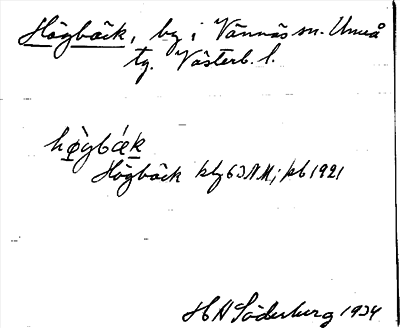 Högbäck, by i Vännäs sn. Umeå
tg. Västerb. l.
hø̀gbǽk
Högbäck kbg 63 NM; kb 1921
H N Söderberg 1934